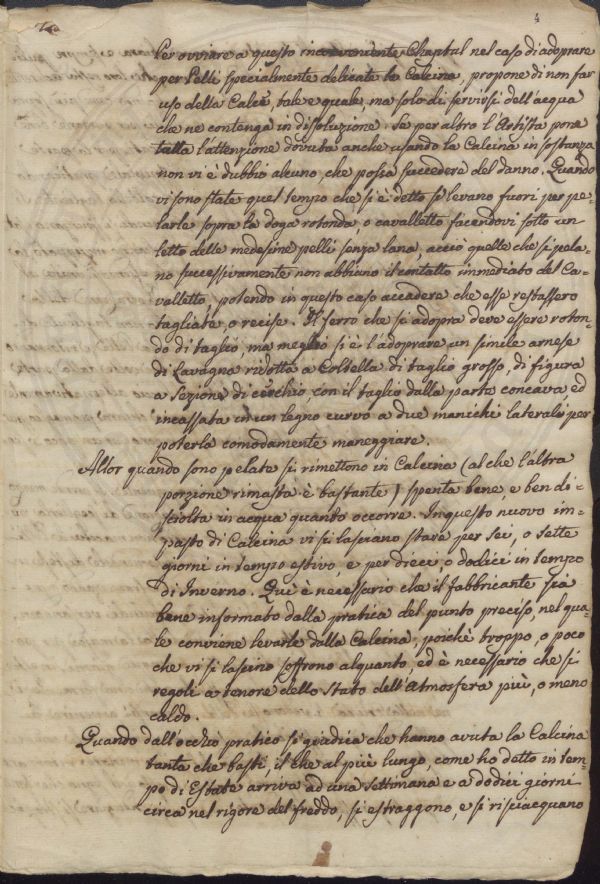 4
Per ovviare a questo inconveniente Chaptal nel caso di adoprare
per Pelli specialmente delicate la Calcina, propone di non far
uso della Calce, tale e quale, ma solo di servirsi dell'acqua
che ne contenga in dissoluzione. Se per altro l'Artista pone
tutta l'attenzione dovuta anche usando la Calcina in sostanza
non vi è dubbio alcuno, che possa succedere del danno. Quando
vi sono state quel tempo che si è detto si levano fuori per pe=
larle sopra la doga rotonda, o cavalletto facendovi sotto un
letto delle medesime pelli senza lana, acciò quelle che si pela=
no successivamente non abbiano il contatto immediato del Ca=
valletto, potendo in questo caso accadere che esse restassero
tagliate, o recise. Il ferro che si adopra deve essere roton=
do di taglio, ma meglio si è l'adoprare un simile arnese
di Lavagna ridotta a Coltella di taglio grosso, di figura
a Sezione di cerchio con il taglio dalla parte concava ed
incassata in un legno curvo a due manichi laterali per
poterla comodamente maneggiare.
Allor quando sono pelate si rimettono in Calcina (al che l'altra
porzione rimasta è bastante) spenta bene, e ben di=
sciolta in acqua quanto occorre. In questo nuovo im=
pasto di Calcina vi si lasciano stare per sei, o sette
giorni in tempo estivo, e per dieci, o dodici in tempo
di Inverno. Quì è necessario che il Fabbricante sia
bene informato dalla pratica del punto preciso, nel qua=
le conviene levarle dalla Calcina, poichè troppo, o poco
che vi si lascino soffrono alquanto, ed è necessario che si
regoli a tenore dello stato dell'Atmosfera più, o meno
caldo.
Quando dall'occhio pratico si giudica che hanno avuta la Calcina
tanta che basti, il che al più lungo, come ho detto in tem=
po di Estate arriva ad una settimana e a dodici giorni
circa nel rigore del freddo, si estraggono, e si risciacquano